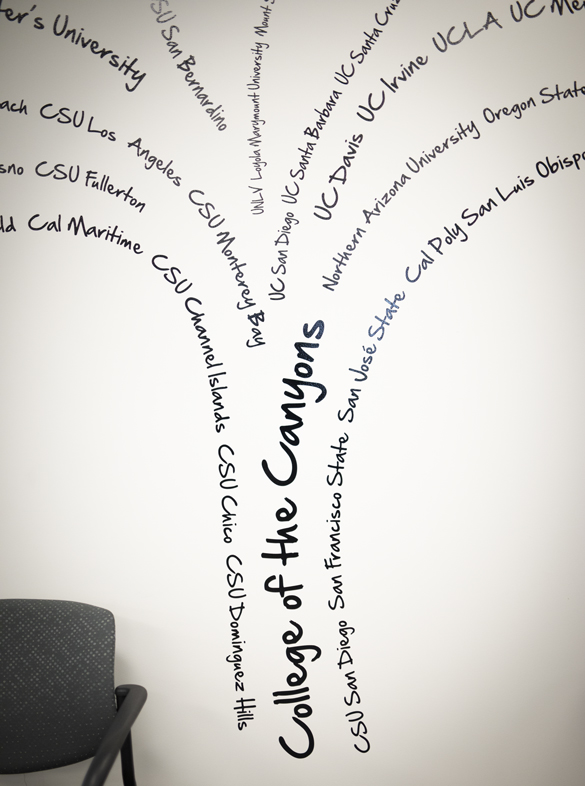 University
CSU Los Angeles CSU Monterey Bay
CSU Fullerton
Cal Maritime CSU Channel Islands CSU Chico CSU Dominguez Hills
San Bernardino
UNLV Loyola Marymount University Mount
College of the Canyons
UC San Diego UC Santa Barbara UC Santa Cruz
UC Davis UC Irvine UCLA UC
Northern Arizona University Oregon State
CSU San Diego San Francisco State San José State Cal Poly San Luis Obispo